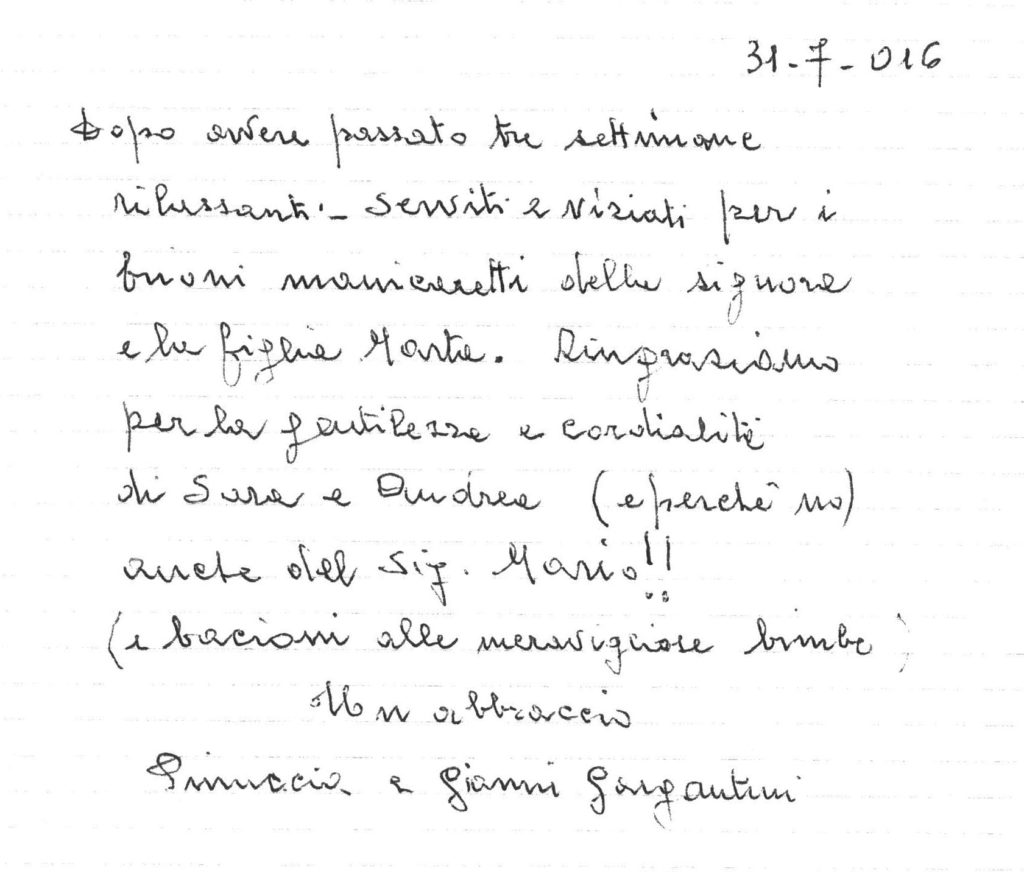 31-7-016
Dopo avere passato tre settimane
rilassanti - serviti e viziati per i
buoni manicaretti della signora
e la figlia Marta. Ringraziamo
per la gentilezza e cordialità
di Sara e Andrea (e perchè no)
anche del Sig. Mario!!
(e bacioni alle meravigliose bimbe)
Un abbraccio
Pinuccia e Gianni Gargantini